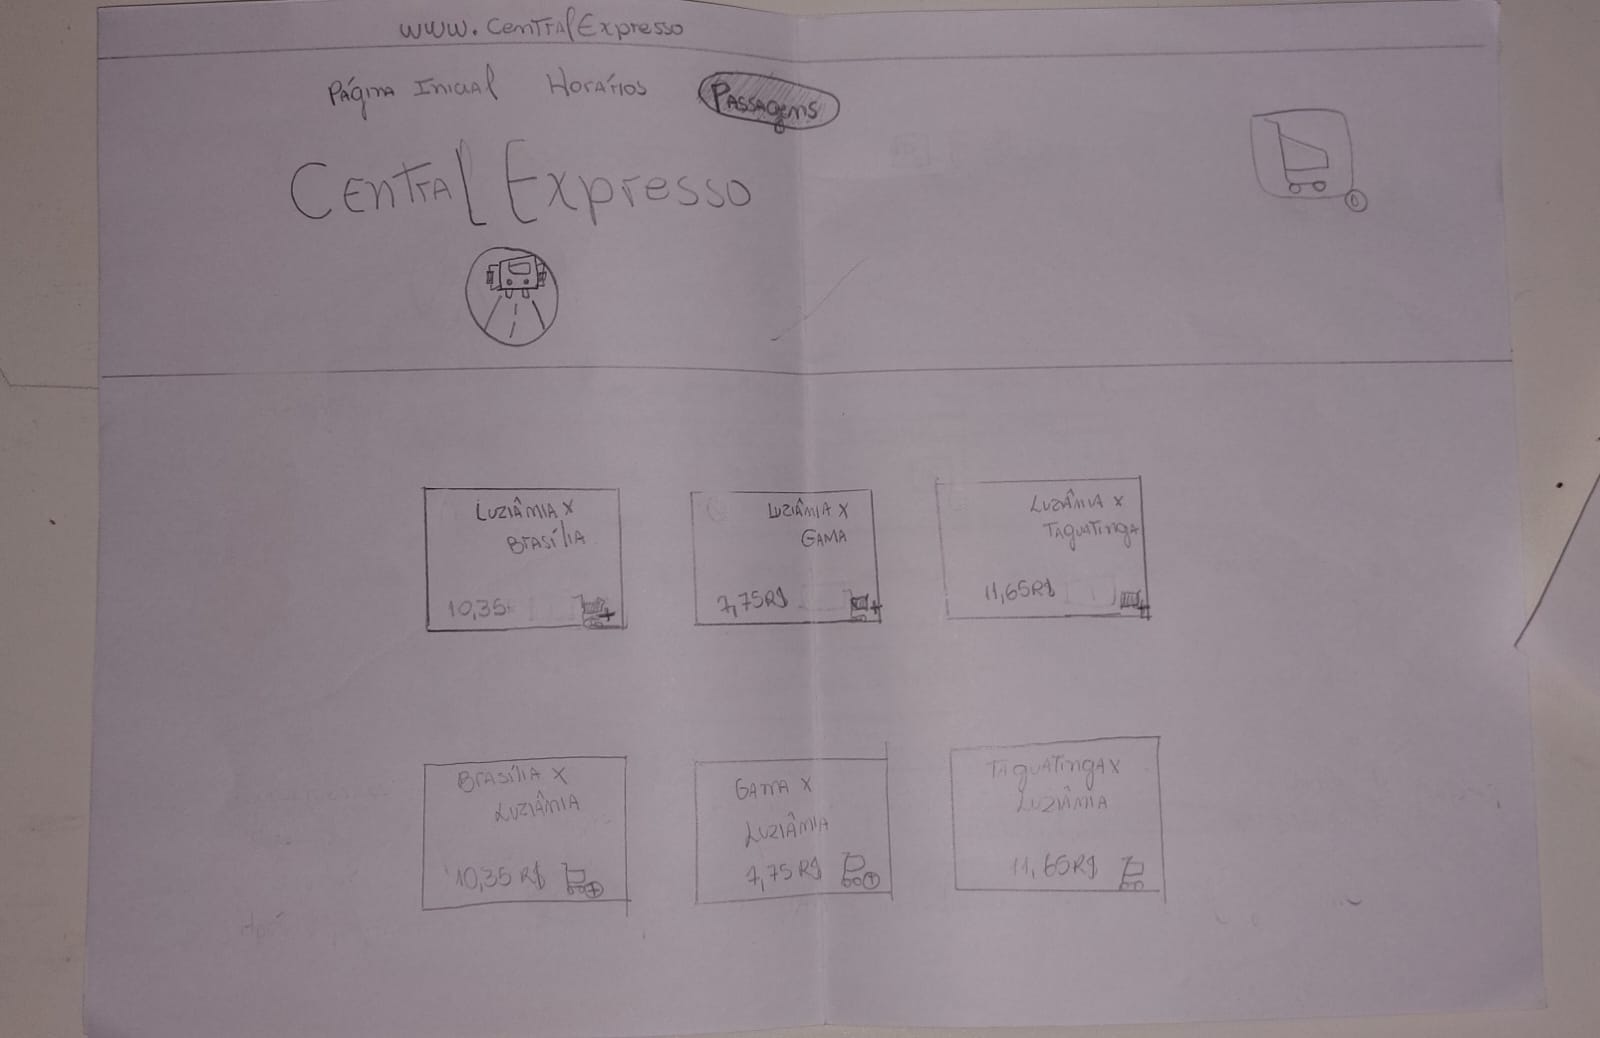 www.CentralExpresso
Página Inicial Horários Passagens
Central Expresso
0
Luziânia x
Brasília
10,35
Luziânia x
Gama
7,75R$
Luziânia x
Taguatinga
11,65R$
Brasília x
Luziânia
10,35 R$
Gama x
Luziânia
7,75 R$
Taguatinga x
Luziânia
11,65R$